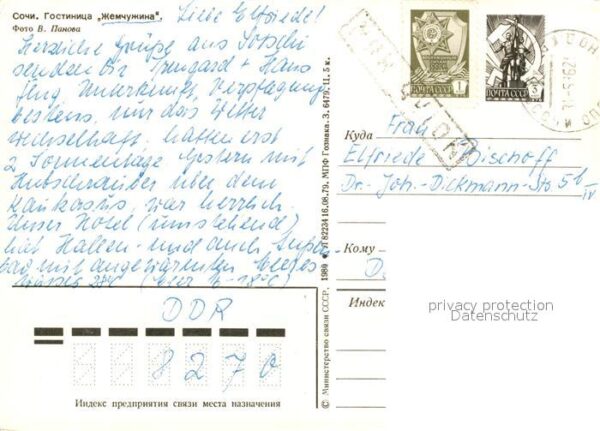 Сочи. Гостиница „Жемчужина".
Фото В. Панова
Liebe Elfriede!
Herzliche Grüße aus Sotschi
senden Dir Irmgard + Hans
Flug, Unterkunft, Verpflegung
bestens, nur das Wetter
wechselhaft, hatten erst
2 Sonnentage. Gestern mit
Hubschrauber über dem
Kaukasus, war herrlich.
Unser Hotel (umstehend)
hat Hallen- und auch
bad mit angewärmten Meeres
wasser 28°C
DDR
8270
Индекс предприятия связи места назначения
© Министерство связи СССР. 1980 Л 82234 16.08.79. МПФ Гознака. З. 6479. Ц. 5 к.
1 ПОЧТА СССР
ПОЧТА СССР
Куда
Frau
Elfriede Bischoff
Dr.-Joh.-Dickmann-Str. 5b
IV
Кому
Индек
privacy protection
Datenschutz